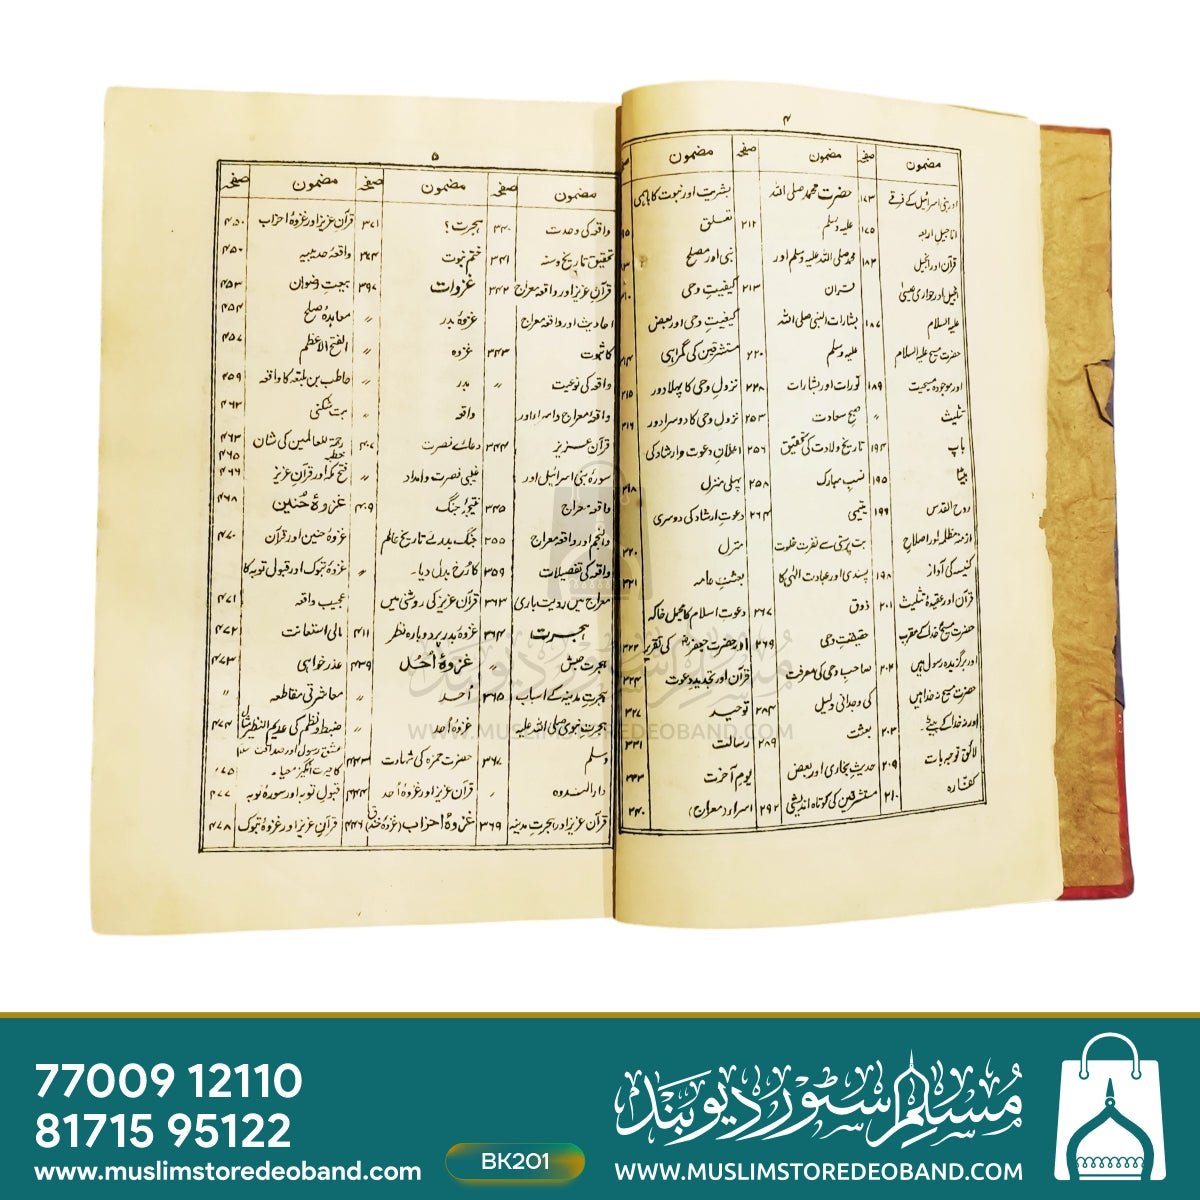 ۴
مضمون صفحہ مضمون صفحہ مضمون
اور بنی اسرائیل کے فرقے ۱۷۳ حضرت محمد صلی اللہ بشریت اور نبوت کا باہمی
اناجیل اربعہ ۱۷۵ علیہ وسلم ۲۱۲ تعلق
قرآن اور انجیل ۱۸۳ محمد صلی اللہ علیہ وسلم اور نبی اور مصلح
انجیل اور حواری عیسیٰ قرآن ۲۱۳ کیفیتِ وحی
علیہ السلام ۱۸۷ بشارات النبی صلی اللہ کیفیتِ وحی اور بعض
حضرت مسیح علیہ السلام علیہ وسلم ۲۲۰ مستشرقین کی گمراہی
اور موجودہ مسیحیت ۱۸۹ تورات اور بشارات ۲۲۸ نزولِ وحی کا پہلا دور
تثلیث ״ صبح سعادت ۲۵۳ نزولِ وحی کا دوسرا دور
باپ ۱۹۴ تاریخ ولادت کی تحقیق ۲۵۶ اعلانِ دعوت و ارشاد کی
بیٹا ۱۹۵ نسبِ مبارک ۲۵۸ پہلی منزل
روح القدس ۱۹۶ یتیمی ۲۶۴ دعوت ارشاد کی دوسری
ازمنہ مظلمہ اور اصلاحِ بت پرستی سے نفرت خلوت منزل
کنیسہ کی آواز ۱۹۸ پسندی اور عبادت الٰہی کا بعثتِ عامہ
قرآن اور عقیدۂ تثلیث ۲۰۱ ذوق ۲۶۷ دعوت اسلام کا مجمل خاکہ
حضرت مسیح خدا کے مقرب حقیقتِ وحی ۲۶۹ اور حضرت جعفرؓ کی تقریر
اور برگزیدہ رسول ہیں ۲۰۲ صاحبِ وحی کی معرفت قرآن اور تجدیدِ دعوت
حضرت مسیح نہ خدا ہیں کی وجدانی دلیل ۲۸۴ توحید
اور نہ خدا کے بیٹے۔ ۲۰۳ بعثت ۲۸۹ رسالت
لائق توجہ بات ۲۰۹ حدیثِ بخاری اور بعض یومِ آخرت
کفّارہ ۲۱۰ مستشرقین کی کوتاہ اندیشی ۲۹۲ اسراء (معراج)
۵
مضمون صفحہ مضمون صفحہ مضمون صفحہ
واقعہ کی وحدت ۳۴۰ ہجرت؟ ۳۷۱ قرآن عزیز اور غزوۂ احزاب ۴۵۰
تحقیق تاریخ و سنہ ۳۴۱ ختم نبوت ۳۶۴ واقعۂ حدیبیہ ۴۵۰
قرآنِ عزیز اور واقعۂ معراج ۳۴۲ غزوات ۳۹۷ بیعتِ رضوان ۴۵۳
احادیث اور واقعۂ معراج غزوۂ بدر ״ معاہدۂ صلح ۴۵۴
کا ثبوت ۳۴۳ غزوہ ״ الفتح الاعظم ۴۵۷
واقعہ کی نوعیت ״ بدر ״ حاطب بن بلتعہ کا واقعہ ۴۵۹
واقعۂ معراج و اسراء اور واقعہ ״ بت شکنی ۴۶۲
قرآن عزیز ۳۴۴ دعائے نصرت ۴۰۷ رحمۃ للعالمین کی شان ۴۶۳
خطبہ ۴۶۵
سورۂ بنی اسرائیل اور غیبی نصرت و امداد فتح مکہ اور قرآن عزیز ۴۶۶
واقعۂ معراج ۳۴۵ نتیجۂ جنگ ۴۰۹ غزوۂ حُنین ۴۶۸
والنجم اور واقعۂ معراج ۳۵۵ جنگ بدر نے تاریخ عالم غزوۂ حنین اور قرآن ۴۷۰
واقعہ کی تفصیلات ۳۵۹ کا رُخ بدل دیا۔ ״ غزوۂ تبوک اور قبولِ توبہ کا
معراج میں رویت باری ۳۶۳ قرآن عزیز کی روشنی میں عجیب واقعہ ۴۷۱
ہجرت ۳۶۴ غزوۂ بدر پر دوبارہ نظر ۴۱۱ مالی استعانت ۴۷۲
ہجرتِ حبش ״ غزوۂ اُحُد ۴۳۹ عذر خواہی ۴۷۳
ہجرتِ مدینہ کے اسباب ۳۶۵ اُحد ״ معاشرتی مقاطعہ ״
ہجرتِ نبوی صلی اللہ علیہ غزوۂ اُحد ״ ضبط و نظم کی عدیم النظیر مثال ۴۷۴
وسلم ۳۶۷ حضرت حمزہ کی شہادت ۴۴۳ عشقِ رسول اور صداقت
کا حیرت انگیز معیار ۴۷۵
دارالندوہ ״ قرآن عزیز اور غزوۂ اُحد ۴۴۴ قبولِ توبہ اور سورۂ توبہ ۴۷۷
قرآن عزیز اور ہجرتِ مدینہ ۳۶۹ غزوۂ احزاب (غزوۂ خندق) ۴۴۶ قرآنِ عزیز اور غزوۂ تبوک ۴۷۸
مسلم سٹور دیوبند
WWW.MUSLIMSTOREDEOBAND.COM
77009 12110
81715 95122
www.muslimstoredeoband.com
BK201
مُسلم سٹور دیوبند
WWW.MUSLIMSTOREDEOBAND.COM